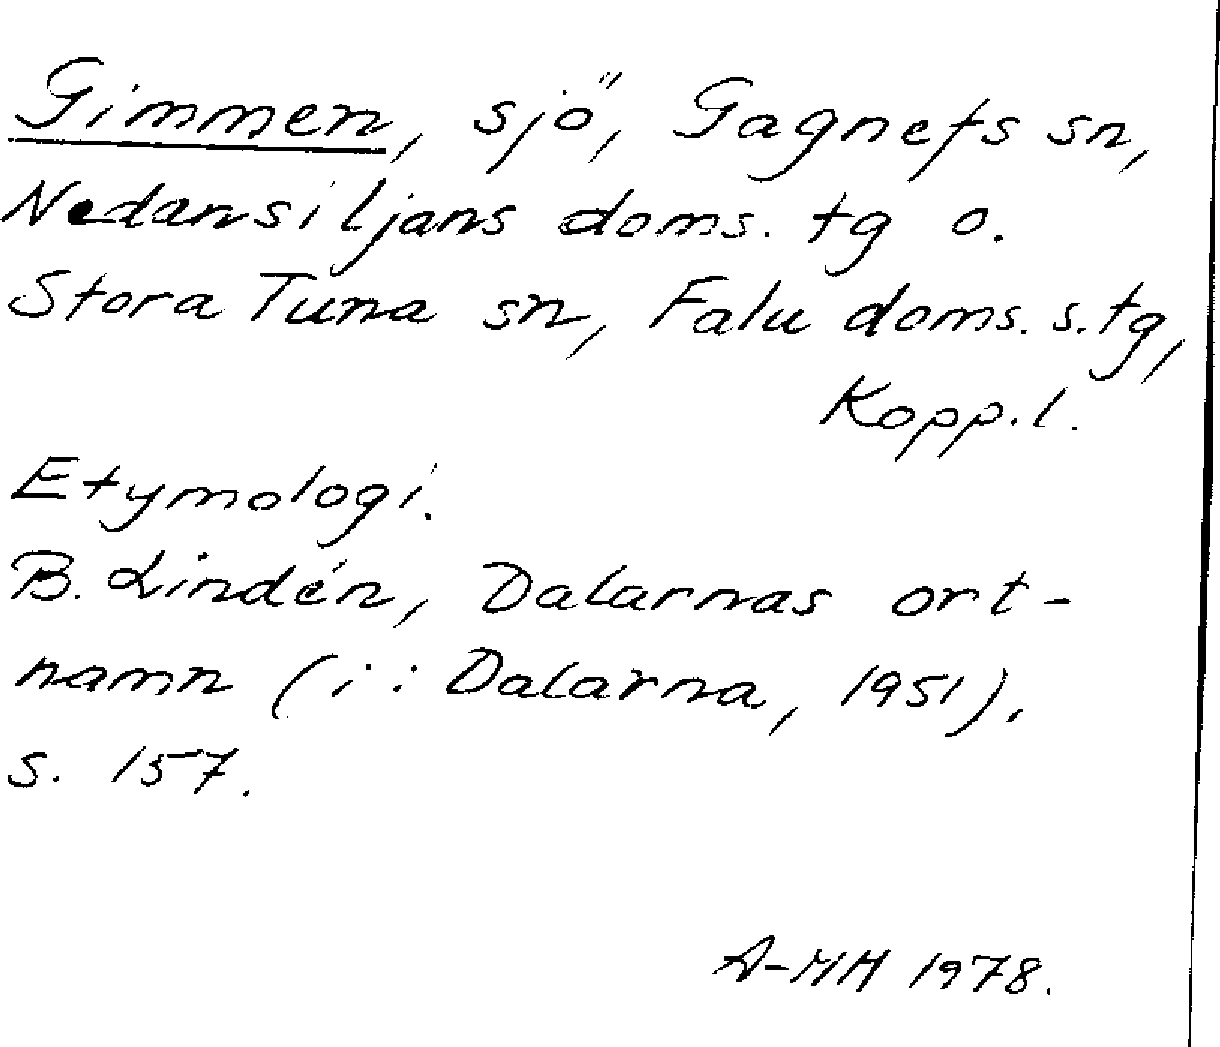 Gimmen, sjö, Gagnefs sn,
Nedansiljans doms. tg o.
Stora Tuna sn, Falu doms. s. tg,
Kopp. l.
Etymologi.
B. Lindén, Dalarnas ort-
namn (i: Dalarna, 1951),
s. 157.
A-MH 1978.